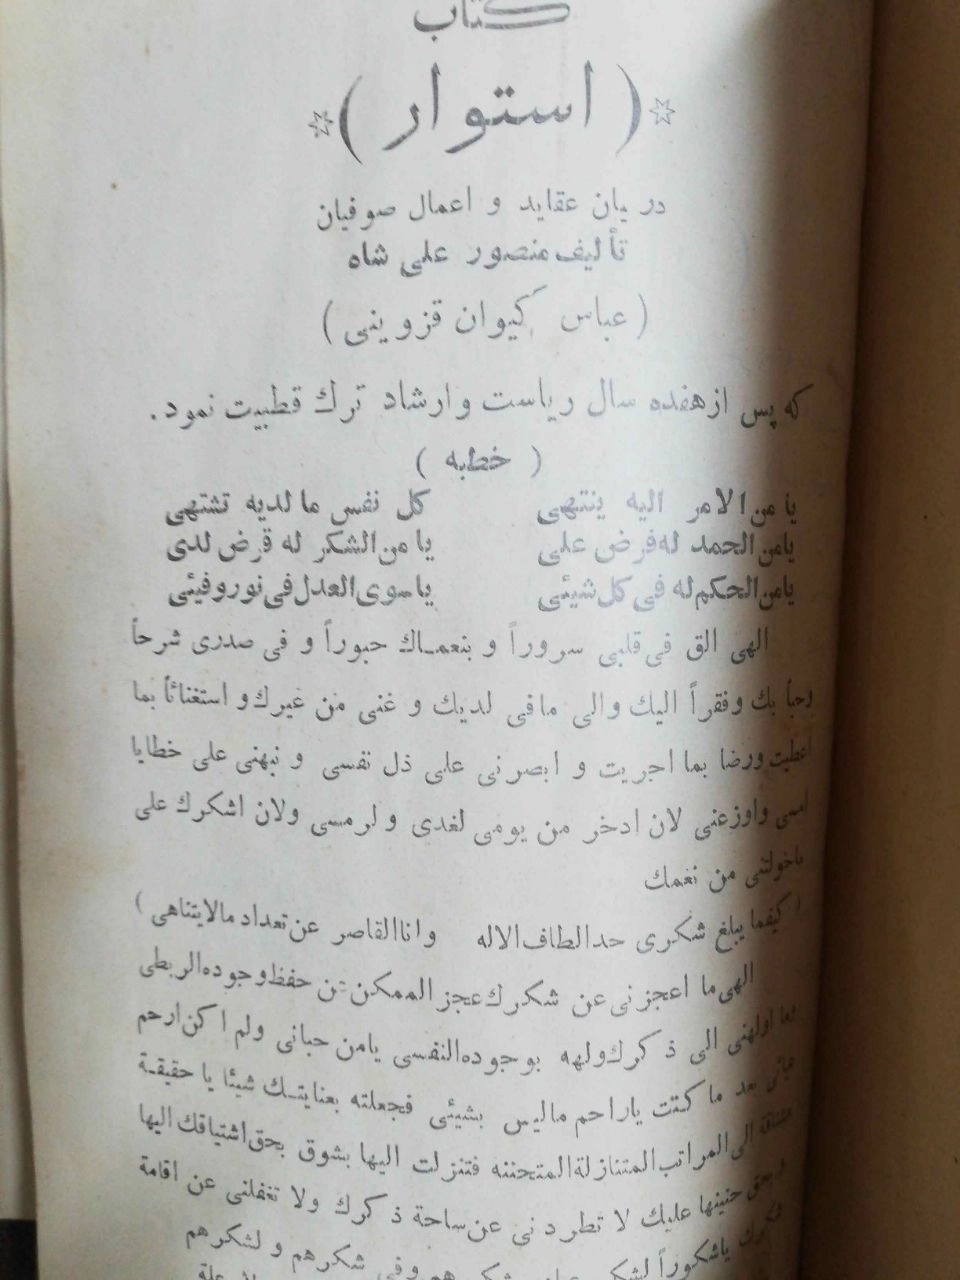 کتاب
( استوار )
در بیان عقاید و اعمال صوفیان
تألیف منصور علی شاه
( عباس کیوان قزوینی )
که پس از هفده سال ریاست و ارشاد ترك قطبیت نمود .
( خطبه )
یا من الامر الیه ینتهی كل نفس ما لدیه تشتهی
یامن الحمد له فرض علی یا من الشکر له قرض لدی
یامن الحکم له فی كل شیئی یا سوی العدل فی نور و فیئی
الهی الق فی قلبی سروراً و بنعماك حبوراً و فی صدری شرحاً
وحباً بك وفقراً الیك والی مافی لدیك و غنی من غیرك و استغنائاً بما
اعطیت ورضا بما اجریت و ابصرنی علی ذل نفسی و نبهنی علی خطایا
امسی واوزعنی لان ادخر من یومی لغدی و لرمسی ولان اشکرك علی
ماخولتنی من نعمك
( کیفما یبلغ شکری حد الطاف الاله وانا القاصر عن تعداد مالایتناهی )
الهی ما اعجزنی عن شکرك عجز الممکن عن حفظ وجوده الربطی
الی ذکرك وله بوجوده النفسی یامن حبانی ولم اکن ارحم
بعد ما کنت یاراحم مالیس بشیئی فجعلته بعنایتك شیئا یا حقیقة
الی المراتب المتنازلة المتحننه فتنزلت الیها بشوق بحق اشتیاقك الیها
حنینها علیك لا تطردنی عن ساحة ذکرك ولا تغفلنی عن اقامة
یاشکوراً وفی شکرهم و لشکرهم